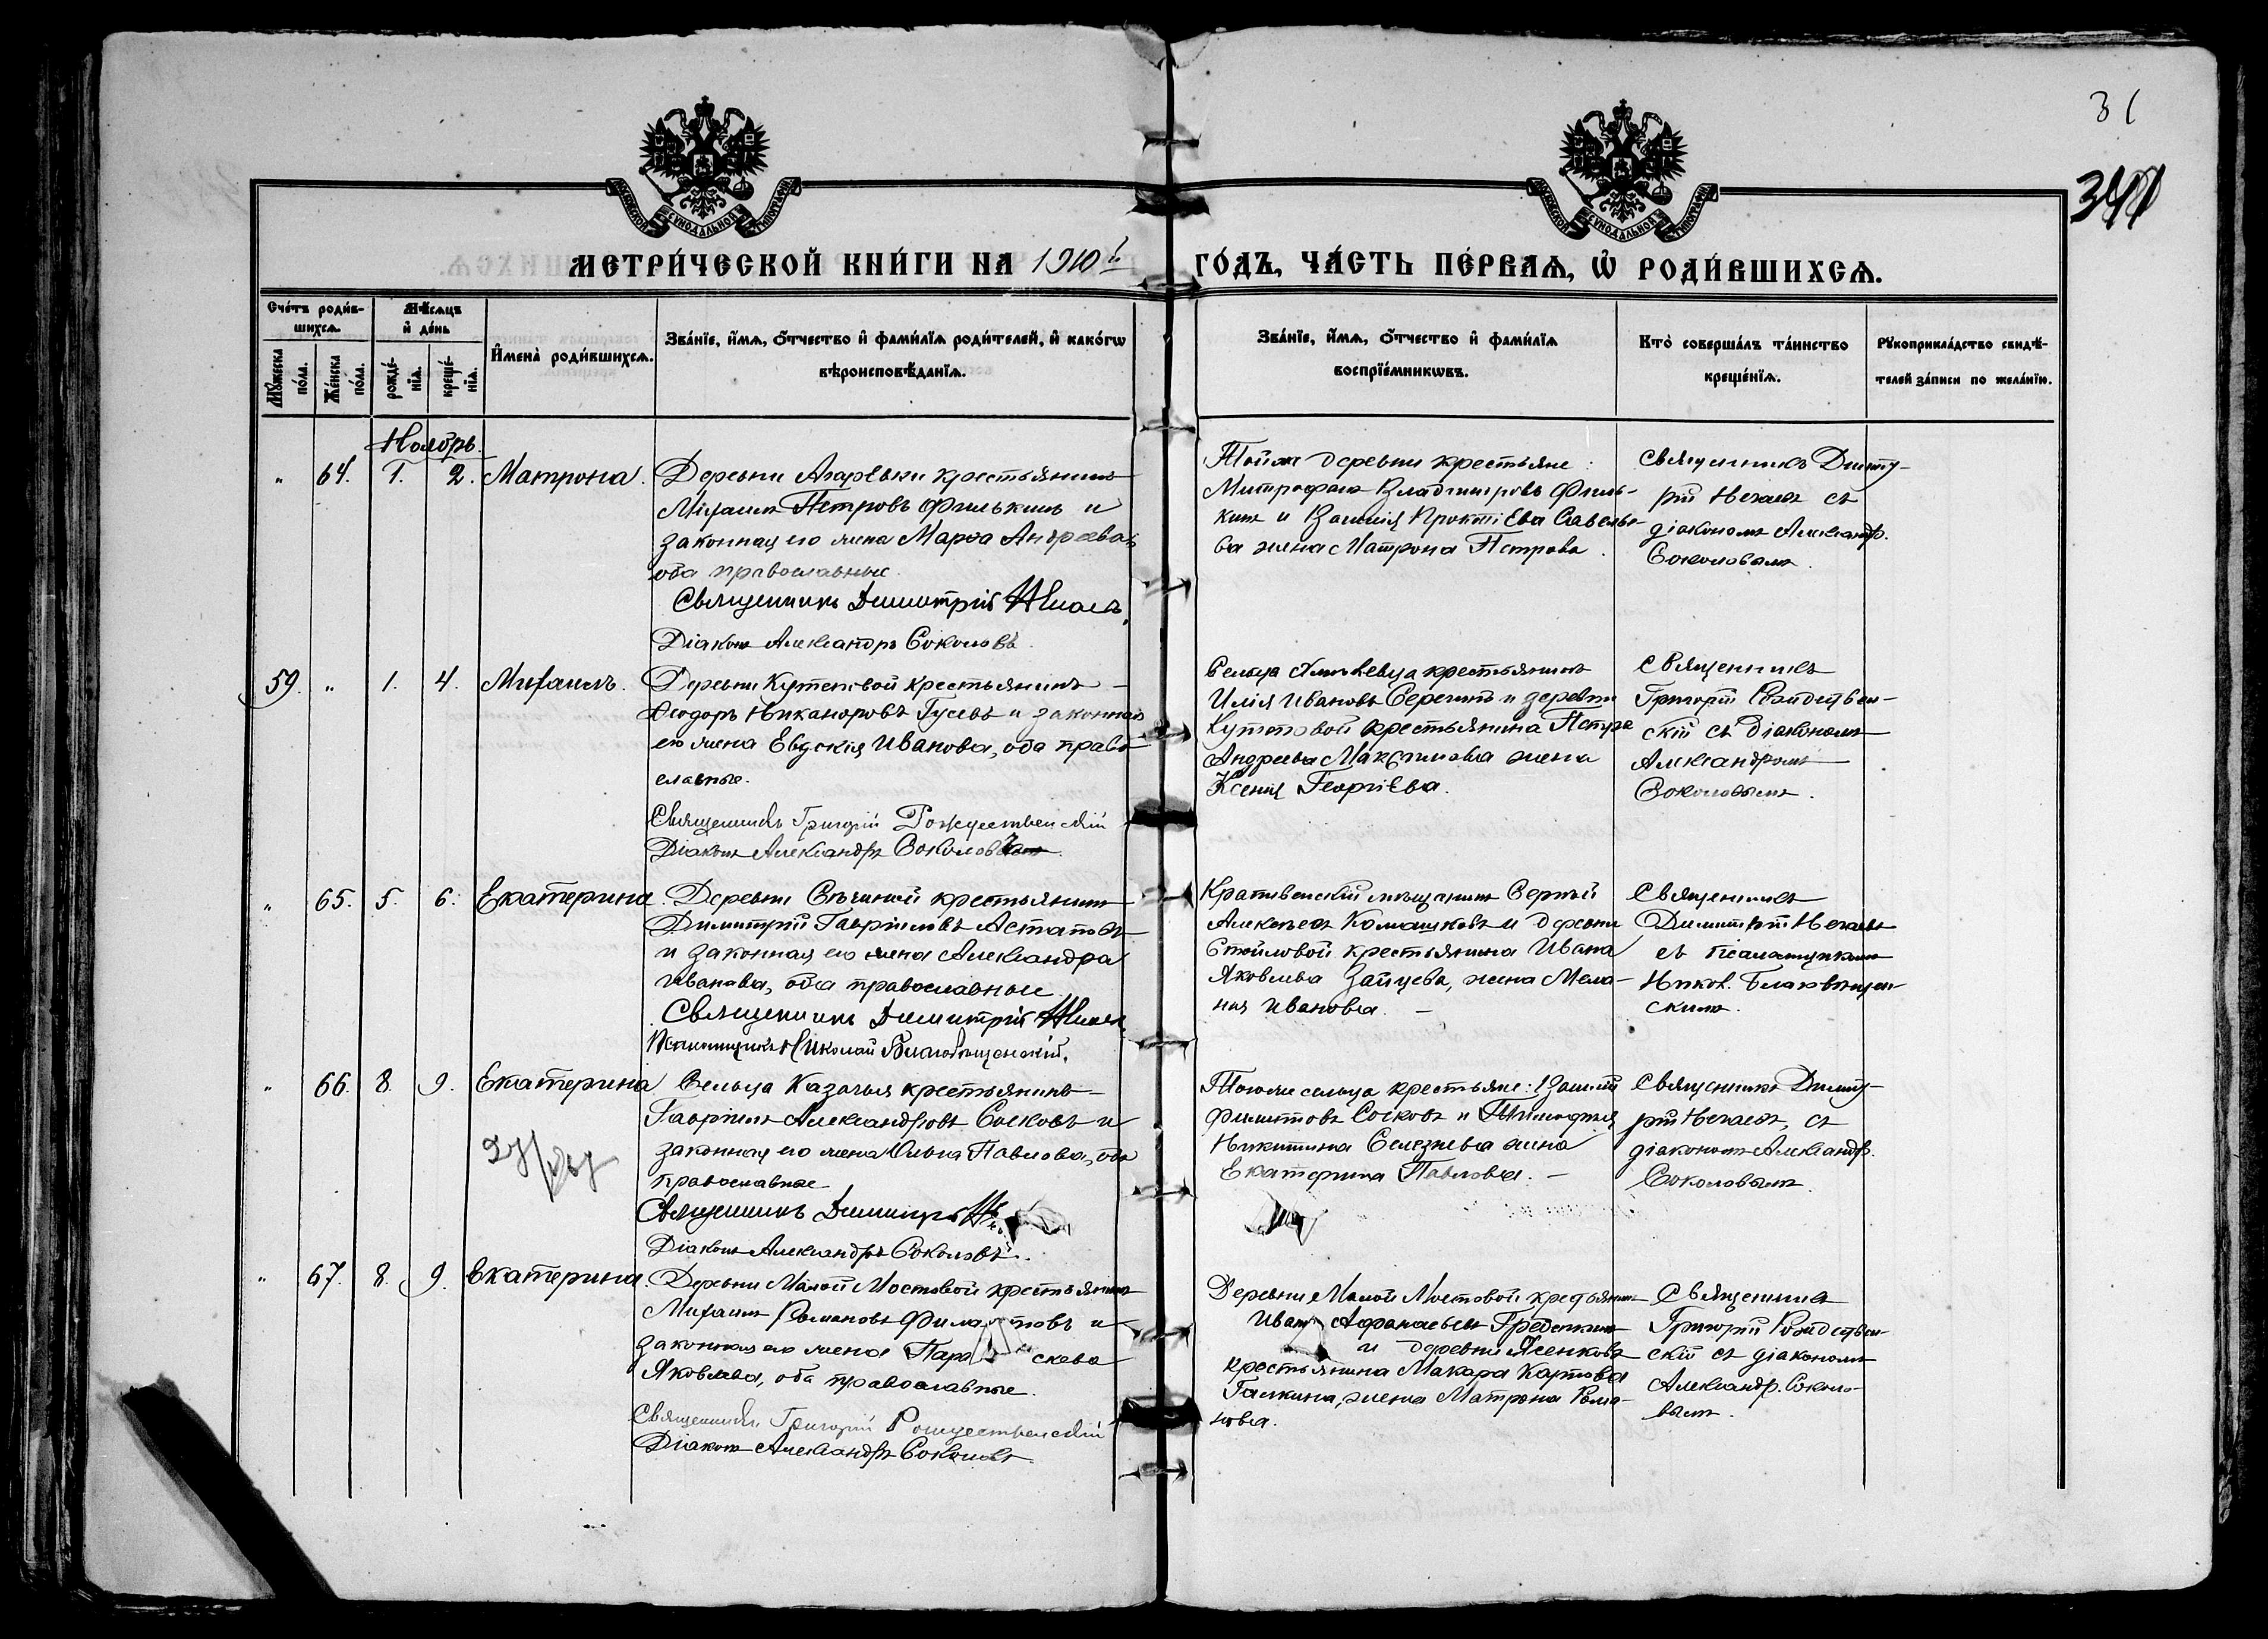 31
МЕТРИ́ЧЕСКОЙ КНИ́ГИ НА 1910й ГО́ДЪ, ЧА́СТЬ ПЕ́РВАѦ, Ѡ РОДИ́ВШИХСѦ.
Сче́тъ роди́в-
шихсѧ.
Мꙋ́жеска по́ла.
Же́нска по́ла.
Мѣ́сѧцъ
и҆ де́нь
рожде́-
нїѧ.
креще́-
нїѧ.
И҆мена̀ роди́вшихсѧ.
Зва́нїе, и҆́мѧ, ѻ҆́тчество и҆ фами́лїѧ роди́телей, и҆ како́гѡ
вѣроисповѣ́данїѧ.
Зва́нїе, и҆́мѧ, ѻ҆́тчество и҆ фами́лїѧ
воспрїе́мникѡвъ.
Кто̀ соверша́лъ та́инство
креще́нїѧ.
Рꙋкоприкла́дство свидѣ́-
телей за́писи по жела́нїю.
Ноябрь.
" 64. 1. 2. Матрона.
Деревни Агарѣвки крестьянинъ
Михаилъ Петровъ Филькинъ и
законная его жена Марѳа Андреева,
оба православные.
Священникъ Димитрій Нечаевъ
Діаконъ Александръ Соколовъ.
Тойже деревни крестьяне:
Митрофанъ Владимировъ Филь-
кинъ и Василія Прокопіева Савелье-
ва жена Матрона Петрова.
Священникъ Димит-
рій Нечаевъ съ
діакономъ Александр.
Соколовымъ.
59. " 1. 4. Михаилъ.
Деревни Кутеповой крестьянинъ
Ѳеодоръ Никаноровъ Гусевъ и законная
его жена Евдокія Иванова, оба право-
славные.
Священникъ Григорій Рождественскій
Діаконъ Александръ Соколовъ
Сельца крестьянинъ
Илія Ивановъ Серегинъ и деревни
Кутеповой крестьянина Петра
Андреева Максимова жена
Ксенія Георгіева.
Священникъ
Григорій Рождествен-
скій съ діакономъ
Александромъ
Соколовымъ.
" 65. 5. 6. Екатерина.
Деревни крестьянинъ
Димитрій Гавріиловъ Астаповъ
и законная его жена Александра
Иванова, оба православные
Священникъ Димитрій Нечаевъ
Псаломщикъ Николай Благовѣщенскій.
Крапивенскій мѣщанинъ Сергѣй
Алексѣевъ Комашковъ и деревни
Стойловой крестьянина Ивана
Яковлева Зайцева, жена Мела-
нія Иванова. –
Священникъ
Димитрій Нечаевъ
съ псаломщикомъ
Никол. Благовѣщен-
скимъ.
" 66. 8. 9. Екатерина
Сельца Казачья крестьянинъ
Гавріилъ Александровъ Сосковъ и
законная его жена Павлова, оба
православные
Священникъ Димитрій
Діаконъ Александръ Соколовъ.
Тогоже сельца крестьяне: Василій
Филиптовъ Сосковъ и Тимофея
Никитина Селезнева жена
Екатерина Павлова. –
Священникъ Димит-
рій Нечаевъ, съ
діакономъ Александр.
Соколовымъ.
" 67. 8. 9. Екатерина.
Деревни Малой Мостовой крестьянинъ
Михаилъ Романовъ Филатовъ и
законная его жена Параскева
Яковлева, оба православные.
Священникъ Григорій Рождественскій
Діаконъ Александръ Соколовъ
Деревни Малой Мостовой крестьянинъ
Иванъ Афанасьевъ Гребенкинъ
и деревни Ясенковъ
крестьянина Макара Карпова
Галкина, жена Матрона Рома-
нова.
Священникъ
Григорій Рождествен-
скій съ діакономъ
Александр. Соколо-
вымъ.